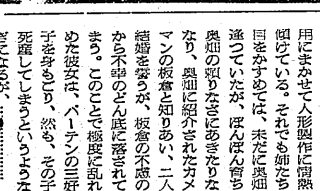 用にまかせて人形製作に情熱
傾けている。それでも姉たち
目をかすめては、未だに奥畑
逢つていたが、ぼんぼん育ち
奥畑の頼りなさにあきたりな
なり、奥畑に紹介されたカメ
マンの板倉と知りあい、二人
結婚を誓うが、板倉の不慮の
から不幸のどん底に落されて
まう。このことで極度に乱れ
めた彼女は、バーテンの三好
子を身もごり、然も、その子
死産してしまうというような